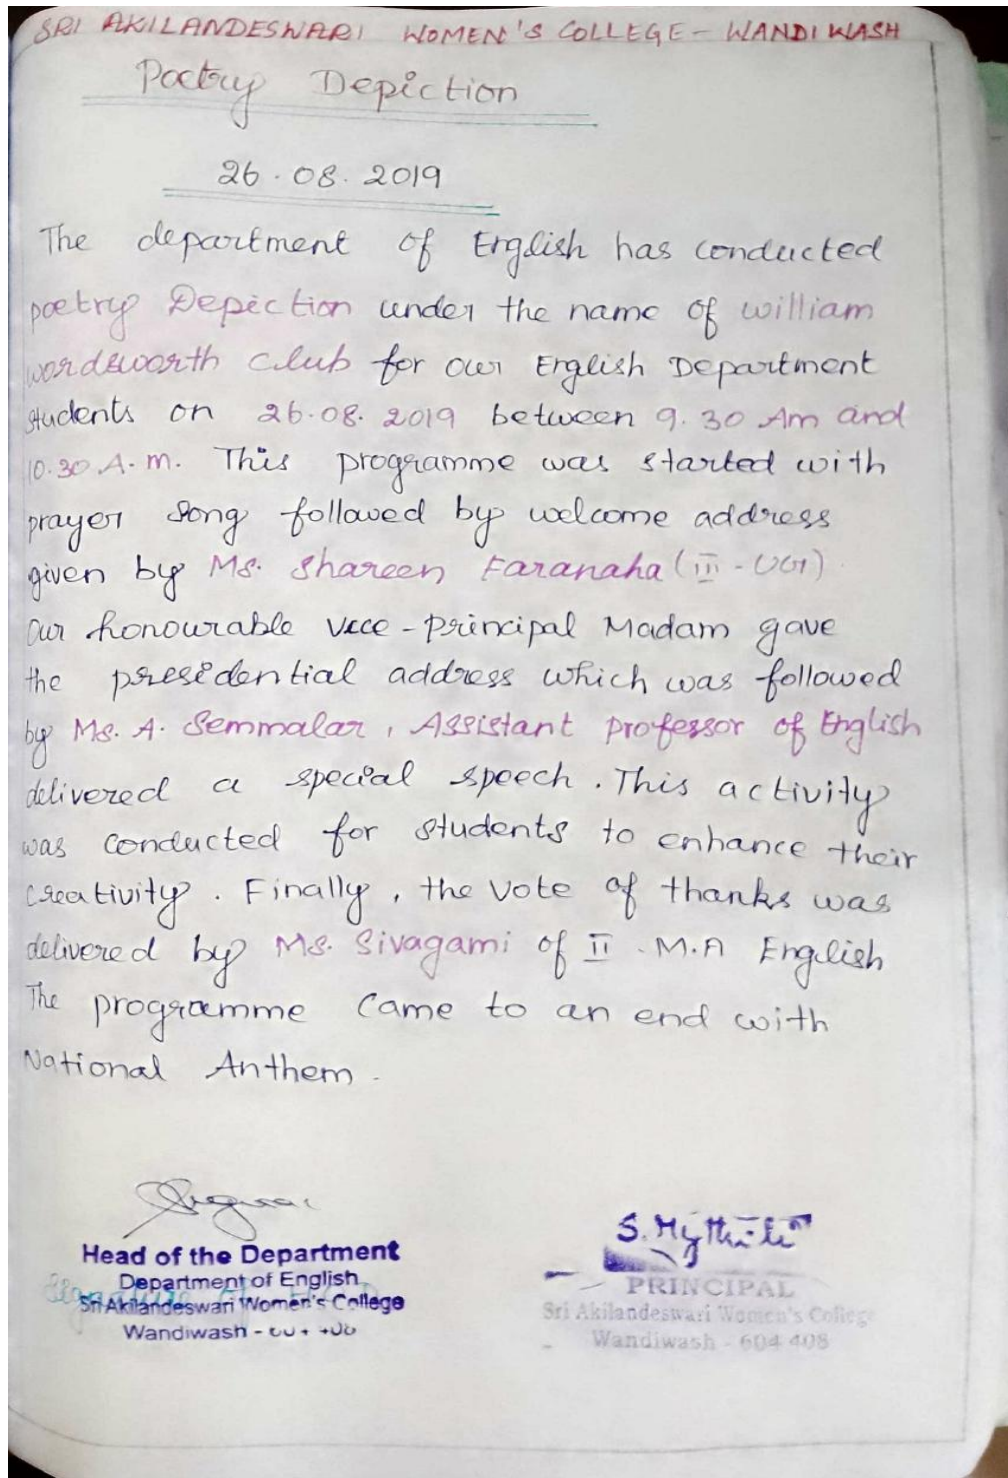 SRI AKILANDESWARI WOMEN'S COLLEGE - WANDIWASH
Poetry Depiction
26.08.2019
The department of English has conducted
poetry Depiction under the name of william
wordsworth club for our English Department
students on 26.08.2019 between 9.30 Am and
10.30 A.m. This programme was started with
prayer song followed by welcome address
given by Ms. Shareen Faranaha (III - UG)
Our honourable Vice-principal Madam gave
the presidential address which was followed
by Ms. A. Semmalar, Assistant professor of English
delivered a special speech. This activity
was conducted for students to enhance their
creativity. Finally, the vote of thanks was
delivered by Ms. Sivagami of II. M.A English
The programme came to an end with
National Anthem.
S. Mythili
Head of the Department
Department of English
Signature of
Sri Akilandeswari Women's College
Wandiwash -
PRINCIPAL
Sri Akilandeswari Women's College
Wandiwash - 604 408